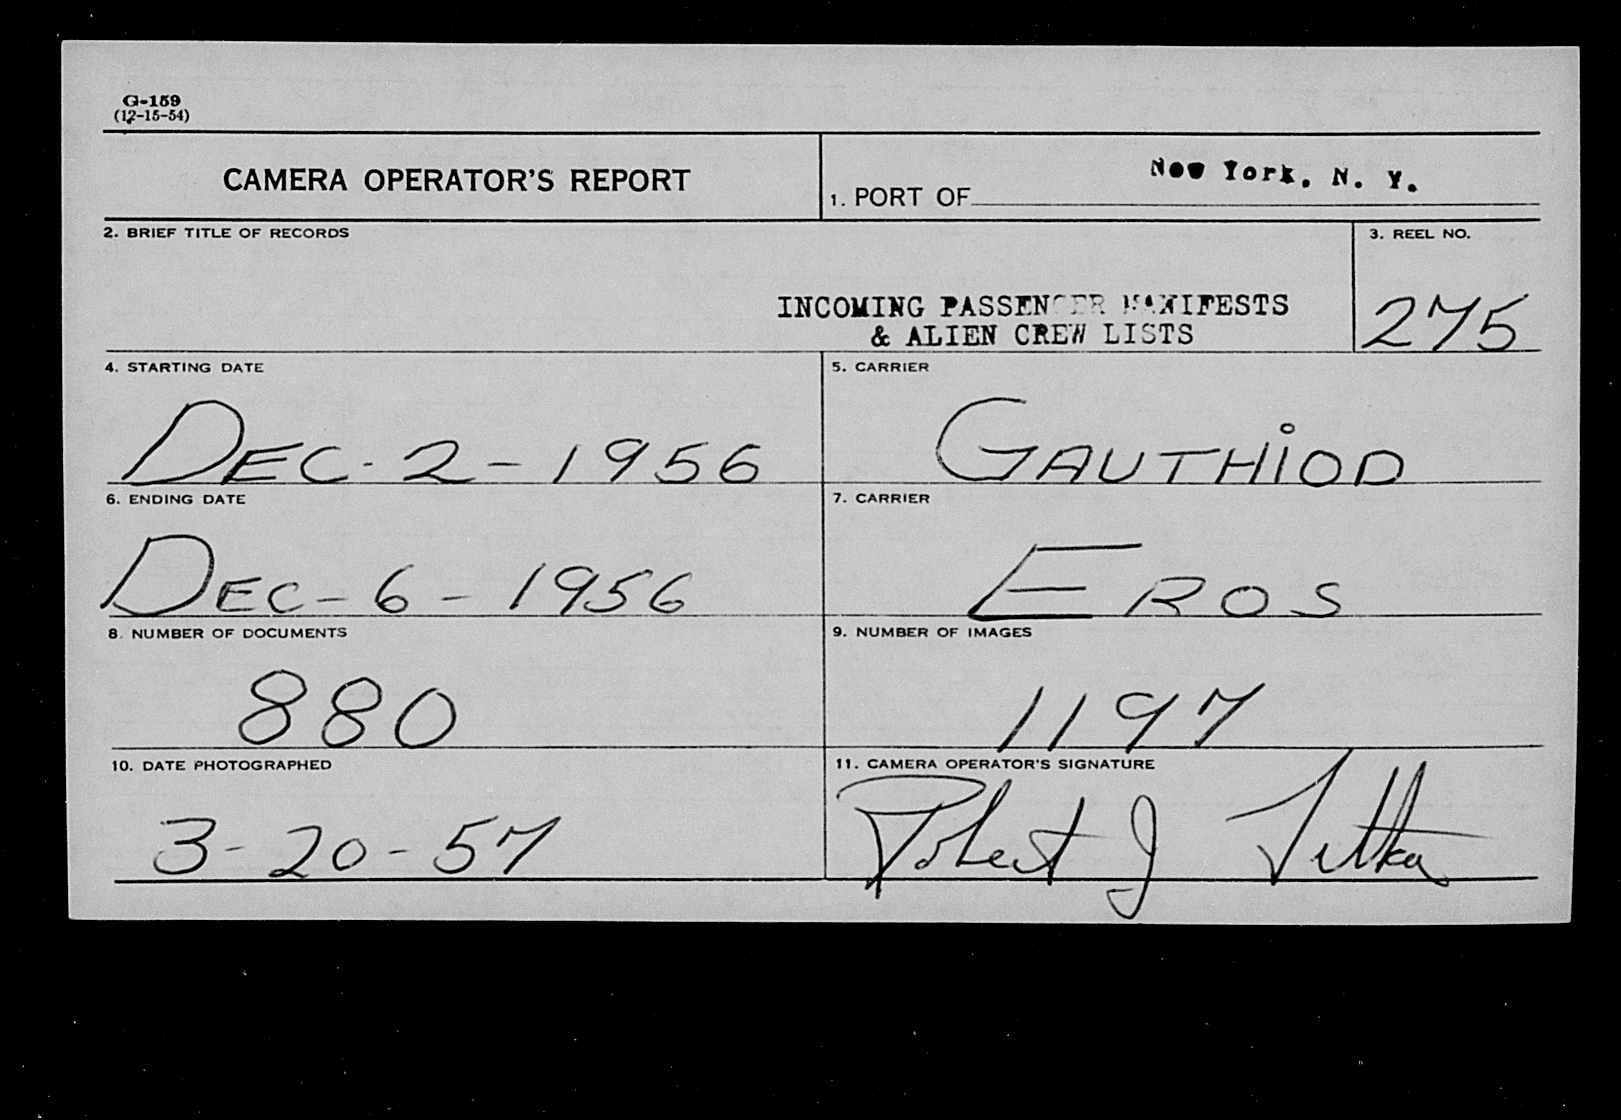 G-159
(12-15-54)
CAMERA OPERATOR'S REPORT
1. PORT OF New York, N. Y.
2. BRIEF TITLE OF RECORDS
INCOMING PASSENGER MANIFESTS
& ALIEN CREW LISTS
3. REEL NO.
275
4. STARTING DATE
DEC. 2 - 1956
5. CARRIER
GAUTHIOD
6. ENDING DATE
DEC - 6 - 1956
7. CARRIER
EROS
8. NUMBER OF DOCUMENTS
880
9. NUMBER OF IMAGES
1197
10. DATE PHOTOGRAPHED
3-20-57
11. CAMERA OPERATOR'S SIGNATURE
Robert J